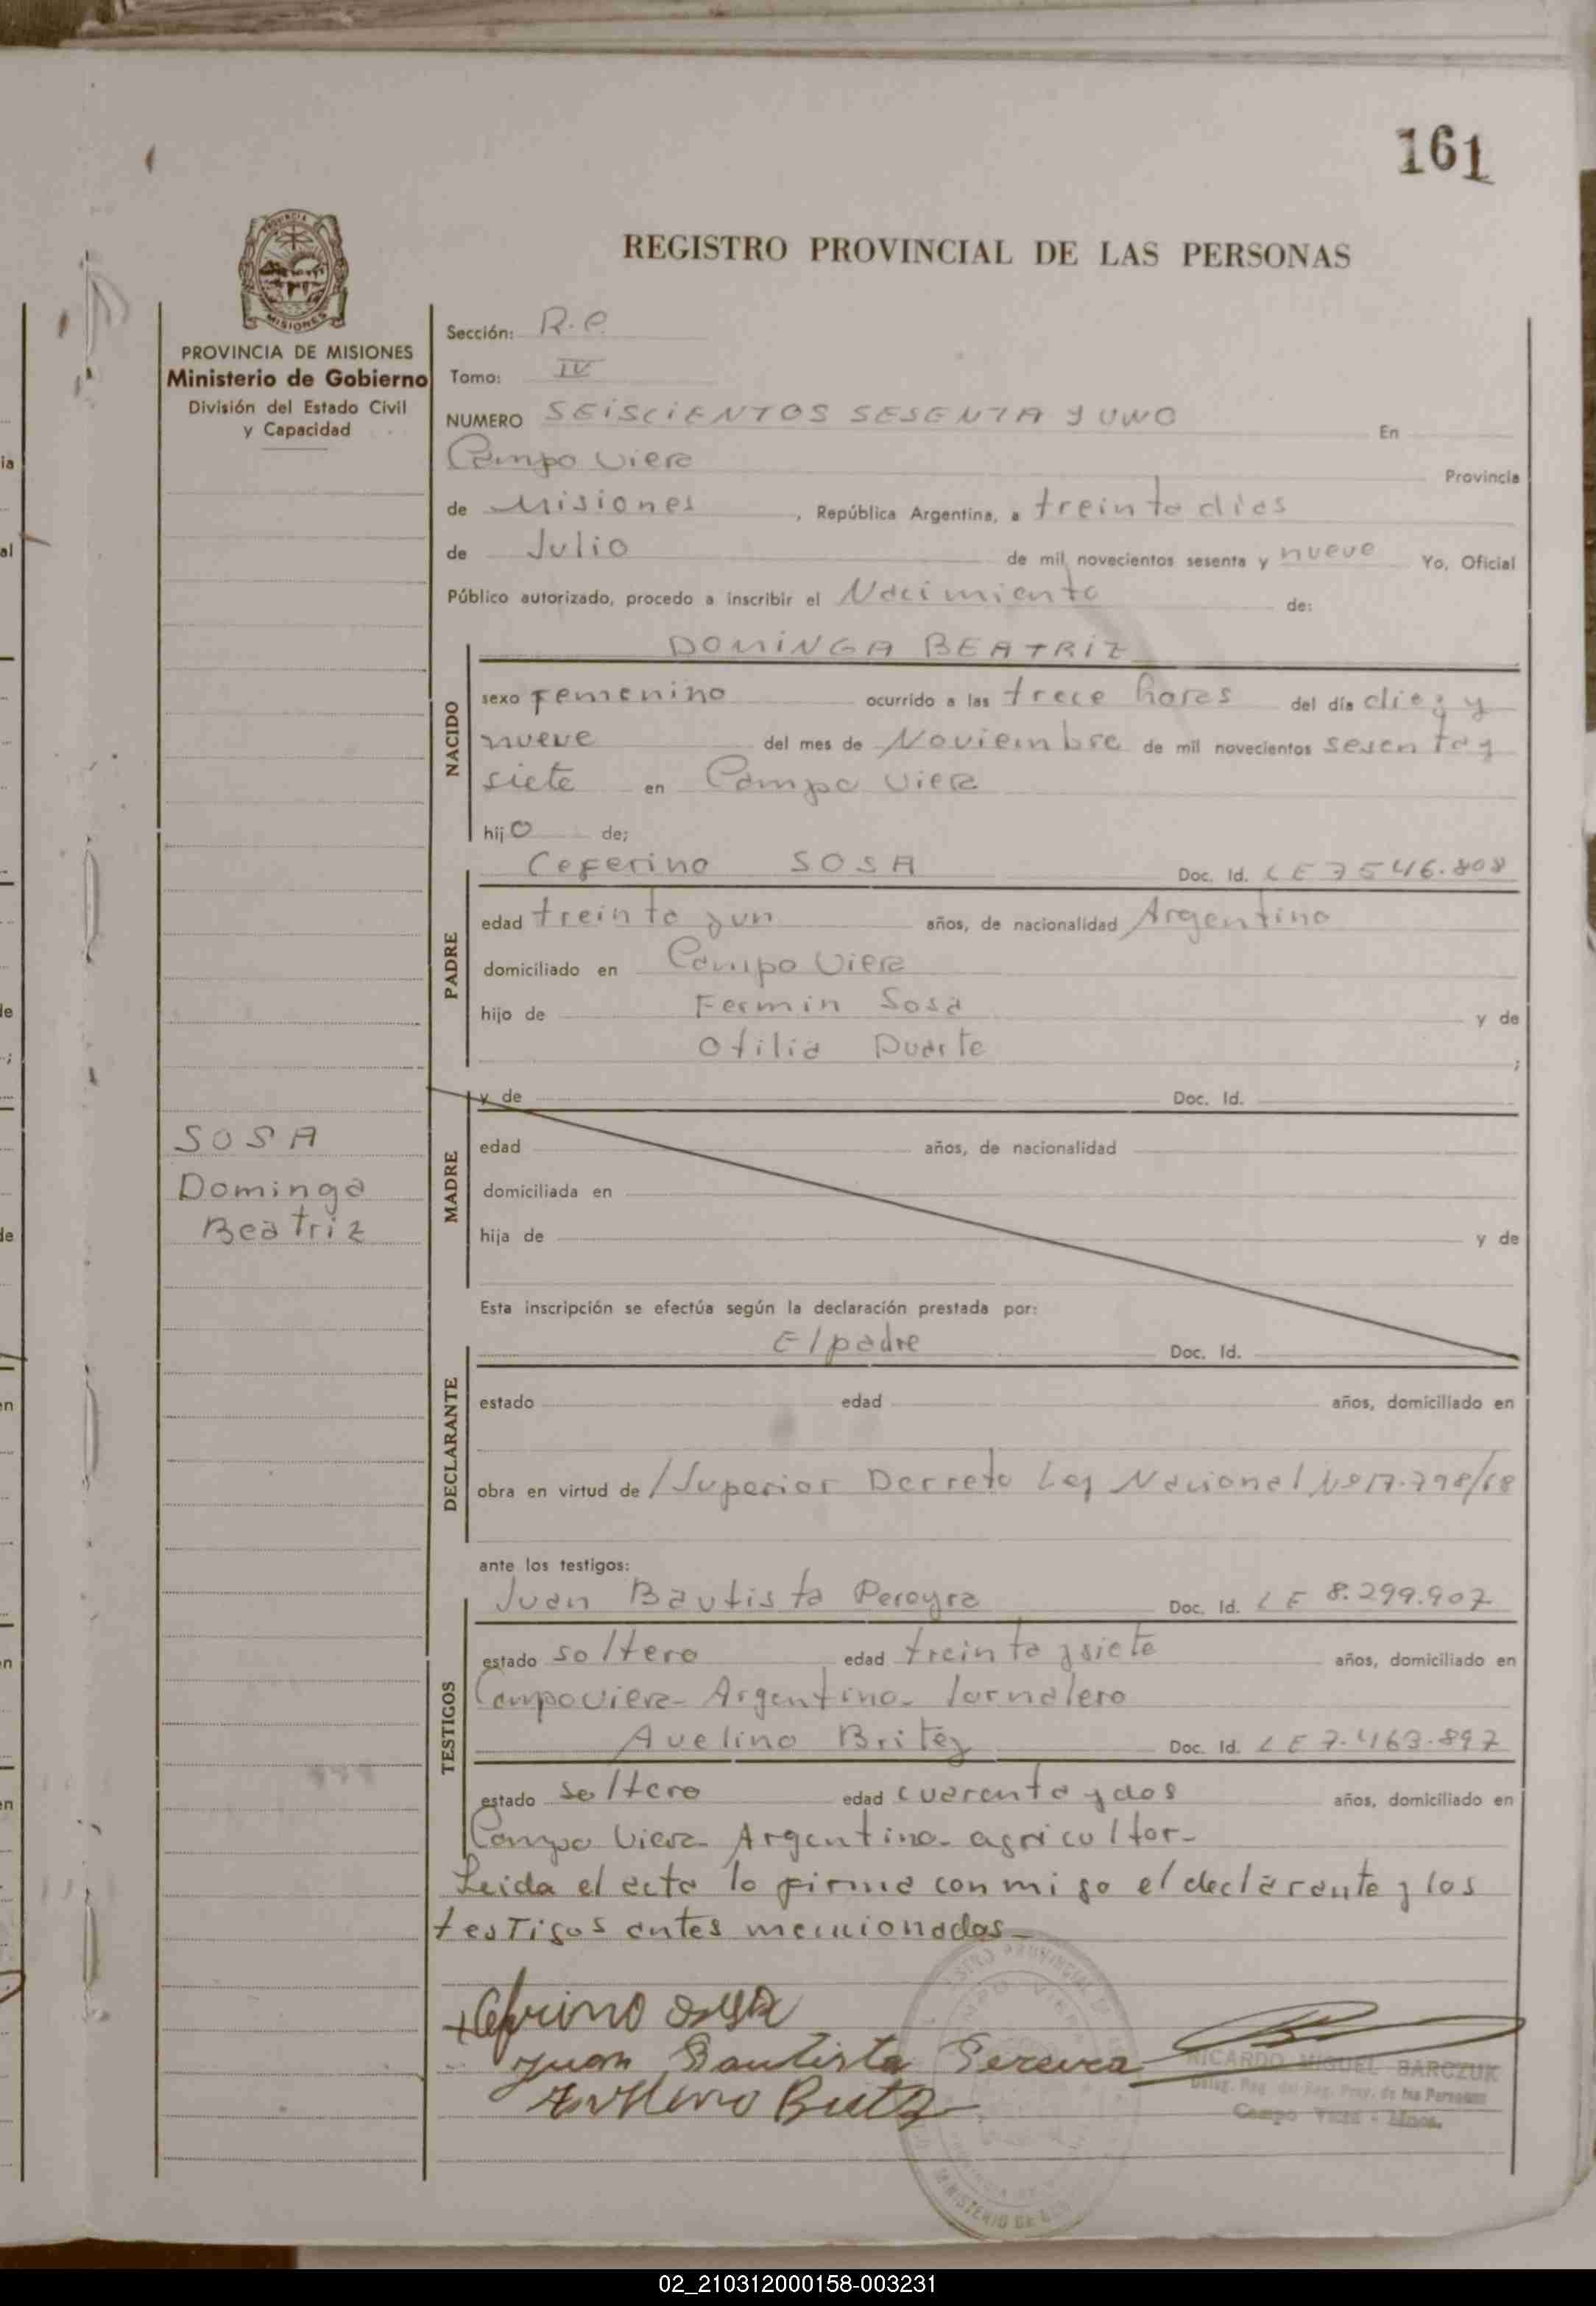 161
REGISTRO PROVINCIAL DE LAS PERSONAS
PROVINCIA
MISIONES
PROVINCIA DE MISIONES
Ministerio de Gobierno
División del Estado Civil
y Capacidad
SOSA
Dominga
Beatriz
Sección: R.e.
Tomo: IV
NUMERO SEISCIENTOS SESENTA y UNO En
Campo Viera Provincia
de Misiones , República Argentina, a treinta dias
de Julio de mil novecientos sesenta y nueve Yo, Oficial
Público autorizado, procedo a inscribir el Nacimiento de:
DOMINGA BEATRIZ
NACIDO
sexo Femenino ocurrido a las trece horas del día diez y
nueve del mes de Noviembre de mil novecientos sesenta y
siete en Campo Viera
hijo de;
Ceferino SOSA Doc. Id. LE 7546.808
PADRE
edad treinta y un años, de nacionalidad Argentino
domiciliado en Campo Viera
hijo de Fermin Sosa y de
Otilia Duarte ;
y de Doc. Id.
MADRE
edad años, de nacionalidad
domiciliada en
hija de y de
Esta inscripción se efectúa según la declaración prestada por:
El padre Doc. Id.
DECLARANTE
estado edad años, domiciliado en
obra en virtud de /Superior Decreto Ley Nacional Nº 17.798/68
ante los testigos:
Juan Bautista Pereyra Doc. Id. LE 8.299.907
TESTIGOS
estado soltero edad treinta y siete años, domiciliado en
Campo Viera- Argentino- Jornalero
Avelino Britez Doc. Id. LE 7.463.897
estado soltero edad cuarenta y dos años, domiciliado en
Campo Viera- Argentino- agricultor-
Leida el acta lo firma con migo el declarante y los
testigos antes mencionados-
+Ceferino Sosa
Juan Bautista Pereira
Avelino Britez
RICARDO MIGUEL BARCZUK
Deleg. Reg. del Reg. Prov. de las Personas
Campo Viera - Mnes.
MINISTERIO DE
02_210312000158-003231